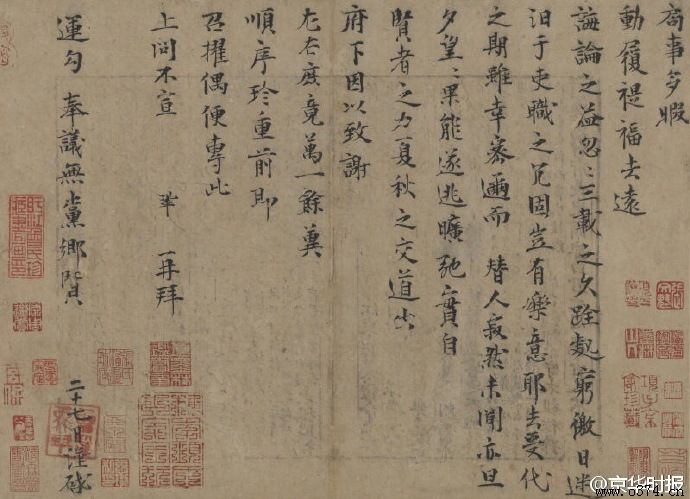 局事多暇
動履禔福去遠
誨論之益忽〻三載之久跧處窮徼日迷
汨于吏職之冗固豈有樂意耶去受代
之期雖幸密邇而 替人寂然未聞亦旦
夕望〻果能遂逃曠弛實自
賢者之力夏秋之交道出
府下因以致謝
左右庶竟萬一餘冀
順序珍重前即
召擢偶便專此
上問不宣 鞏 再拜
運勾 奉議無黨鄉賢 二十七日謹啟
@京华时报
www.0574.cn